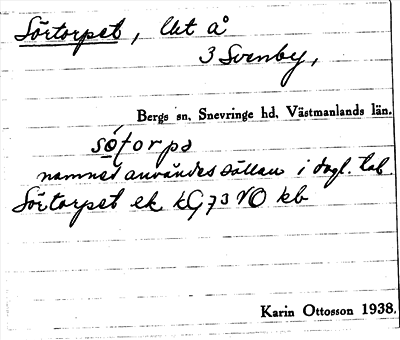 Sörtorpet, Ut å
3 Svenby,
Bergs sn, Snevringe hd, Västmanlands län.
sö́torpə
namnet användes sällan i dagl. tal.
Sörtorpet ek kG73 VO kb
Karin Ottosson 1938.